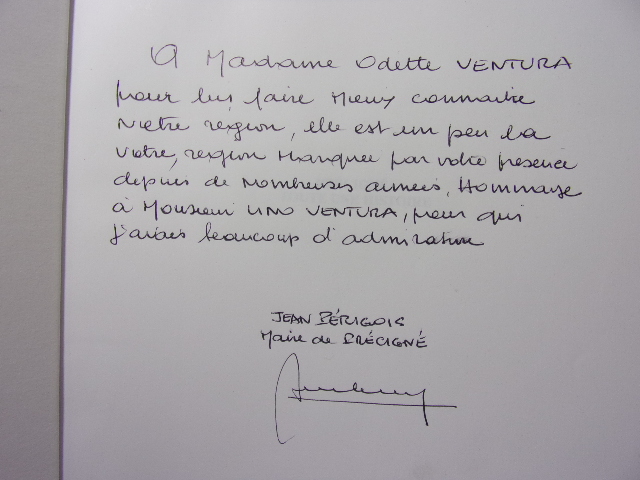 A Madame Odette VENTURA
pour lui faire Mieux connaitre
Notre région, elle est un peu la
Votre, région Marquée par votre présence
depuis de Nombreuses années. Hommage
à Monsieur LINO VENTURA, pour qui
j'avais beaucoup d'admiration
JEAN PÉRIGOIS
Maire de PRÉCIGNÉ